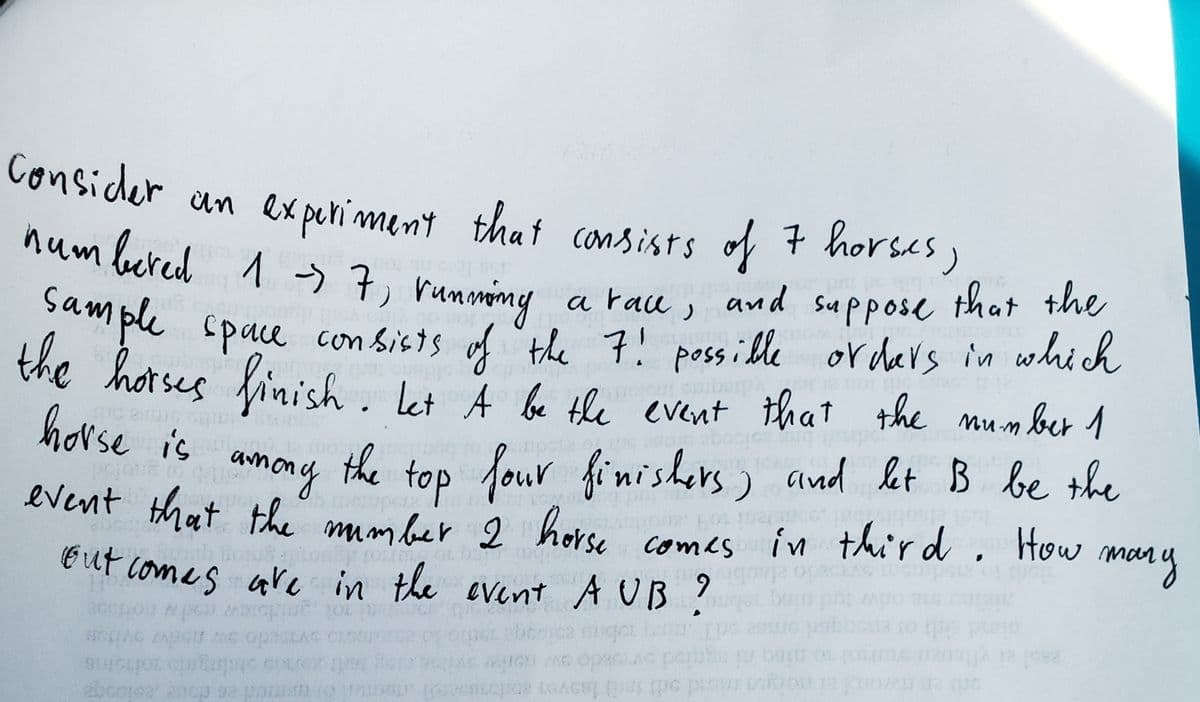 Consider an experiment that consists of 7 horses,
numbered 1 → 7, running a race, and suppose that the
sample space consists of the 7! possible orders in which
the horses finish. Let A be the event that the number 1
horse is among the top four finishers, and let B be the
event that the number 2 horse comes in third. How many
outcomes are in the event A ∪ B ?